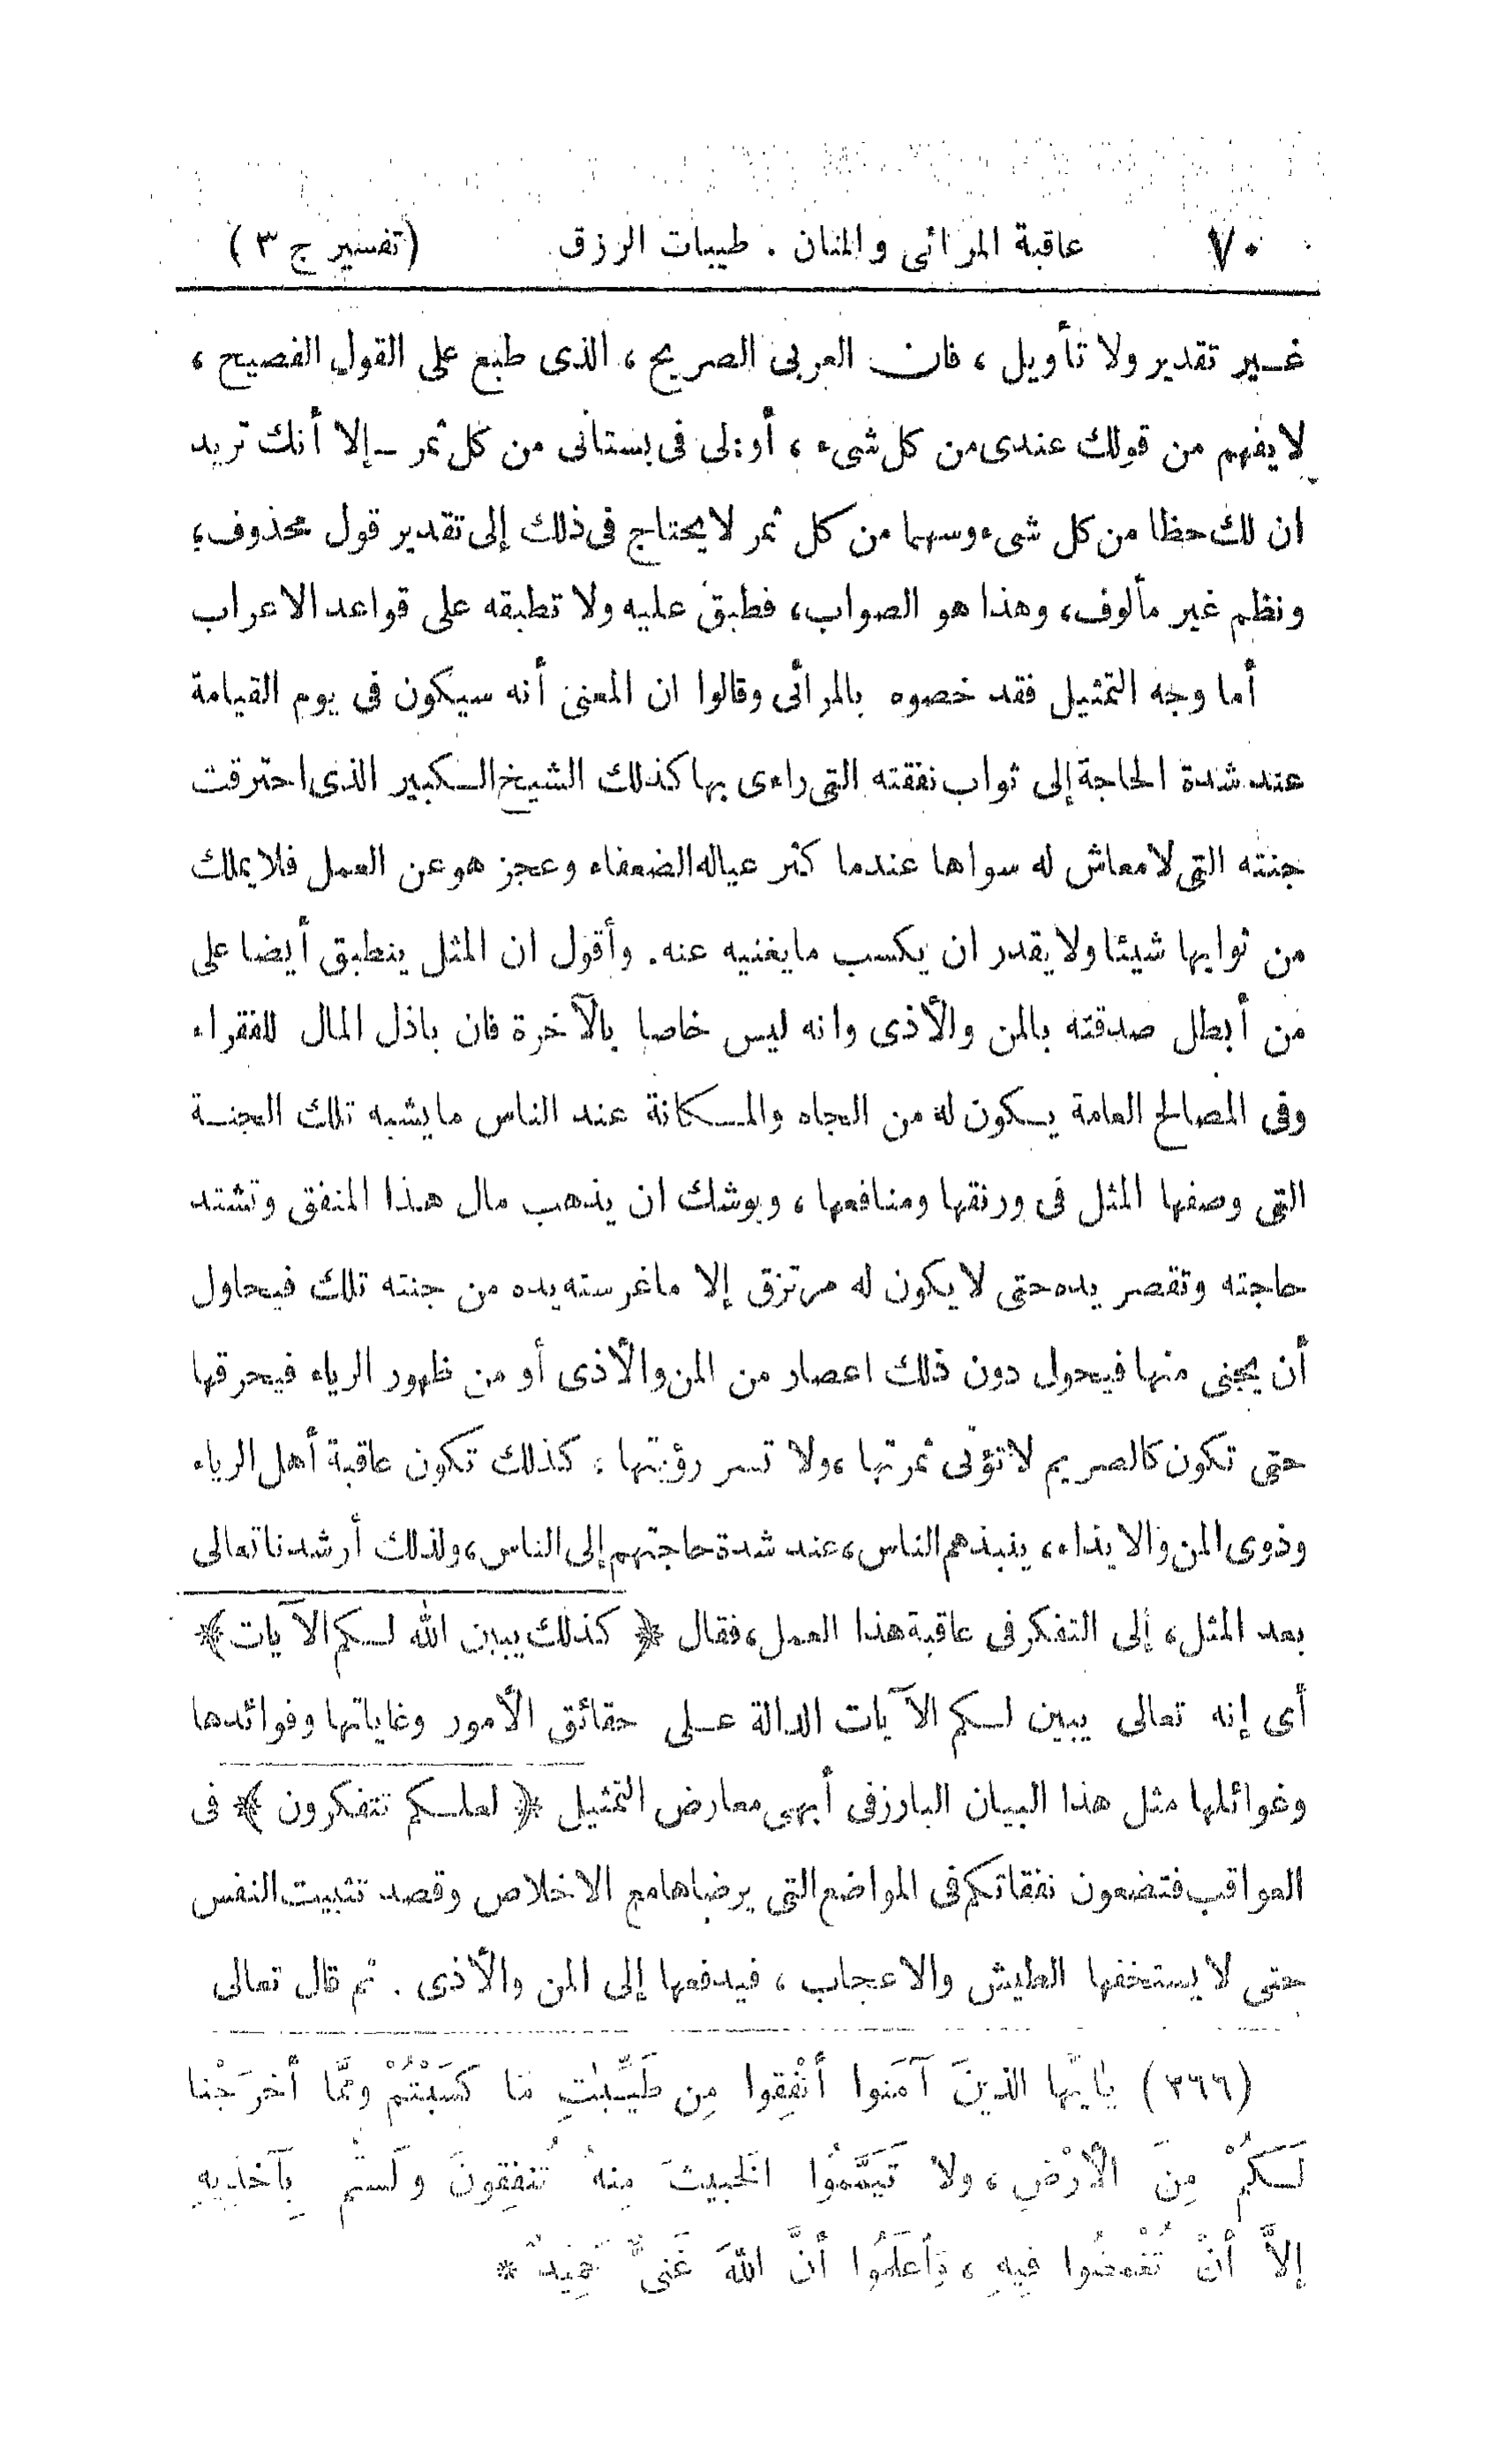 ٧٠ عاقبة المرائى والمنان . طيبات الرزق (تفسير ج ٣)
غير تقدير ولا تأويل ، فان العربى الصريح ، الذى طبع على القول الفصيح ،
لايفهم من قولك عندى من كل شىء ، أو : لى فى بستانى من كل ثمر ــ إلا أنك تريد
ان لك حظا من كل شىء وسهما من كل ثمر لايحتاج فى ذلك إلى تقدير قول محذوف ،
ونظم غير مألوف ، وهذا هو الصواب ، فطبق عليه ولا تطبقه على قواعد الاعراب
أما وجه التمثيل فقد خصوه بالمرائى وقالوا ان المعنى أنه سيكون فى يوم القيامة
عند شدة الحاجة إلى ثواب نفقته التى راءى بها كذلك الشيخ الكبير الذى احترقت
جنته التى لامعاش له سواها عندما كثر عياله الضعفاء وعجز هو عن العمل فلايملك
من ثوابها شيئا ولايقدر ان يكسب مايغنيه عنه . وأقول ان المثل ينطبق أيضا على
من أبطل صدقته بالمن والأذى وانه ليس خاصا بالآخرة فان باذل المال للفقراء
وفى المصالح العامة يكون له من الجاه والمكانة عند الناس مايشبه تلك الجنة
التى وصفها المثل فى رونقها ومنافعها ، ويوشك ان يذهب مال هذا المنفق وتشتد
حاجته وتقصر يده حتى لايكون له مرتزق إلا ماغرسته يده من جنته تلك فيحاول
أن يجنى منها فيحول دون ذلك اعصار من المن والأذى أو من ظهور الرياء فيحرقها
حتى تكون كالصريم لاتؤتى ثمرتها ، ولا تسر رؤيتها : كذلك تكون عاقبة أهل الرياء
وذوى المن والايذاء ، ينبذهم الناس ، عند شدة حاجتهم إلى الناس ، ولذلك أرشدنا تعالى
بعد المثل ، إلى التفكر فى عاقبة هذا العمل ، فقال ﴿ كذلك يبين الله لكم الآيات ﴾
أى إنه تعالى يبين لكم الآيات الدالة على حقائق الأمور وغاياتها وفوائدها
وغوائلها مثل هذا البيان البارز فى أبهى معارض التمثيل ﴿ لعلكم تتفكرون ﴾ فى
العواقب فتضعون نفقاتكم فى المواضع التى يرضاها مع الاخلاص وقصد تثبيت النفس
حتى لا يستخفها الطيش والاعجاب ، فيدفعها إلى المن والأذى . ثم قال تعالى
(٢٦٦) يٰأيّها الذينَ آمَنوا أنْفِقوا مِن طَيِّبٰتِ مَا كَسَبْتُمْ ومِمَّا أخرَجْنا
لَكُمْ مِنَ الأرْضِ ، ولا تَيَمَّمُوا الخَبيثَ مِنهُ تُنفِقونَ ولَستُم بِآخذِيهِ
إلاَّ أنْ تُغْمضُوا فِيهِ ، وَاعلَمُوا أنَّ اللهَ غَنيٌّ حَمِيدٌ *